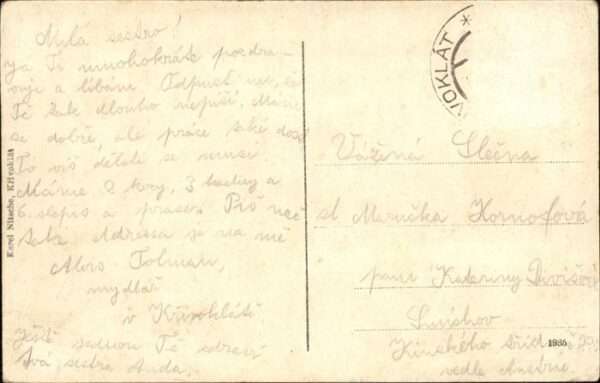 Milá sestro!
Já Tě mnohokráte pozdra-
vuji a líbám. Odpusť mě, že
Tě tak dlouho nepíši. Máme
se dobře, ale práce také dost
To víš dělati se musí.
Máme 2 krávy, 3 husy a
6 slepic a prase. Piš nač
Adressa se na mě
Alois Tolman,
mydlář
v Křivoklátě
Ještě jednou Tě zdraví
Tvá sestra Anda.
Karel Nitsche, Křivoklát
VOKLÁT *
Vážená Slečna
sl Marnička Hornofová
paní Kateřiny Divišové
Smíchov
Kinského třída č.
vedle
1935